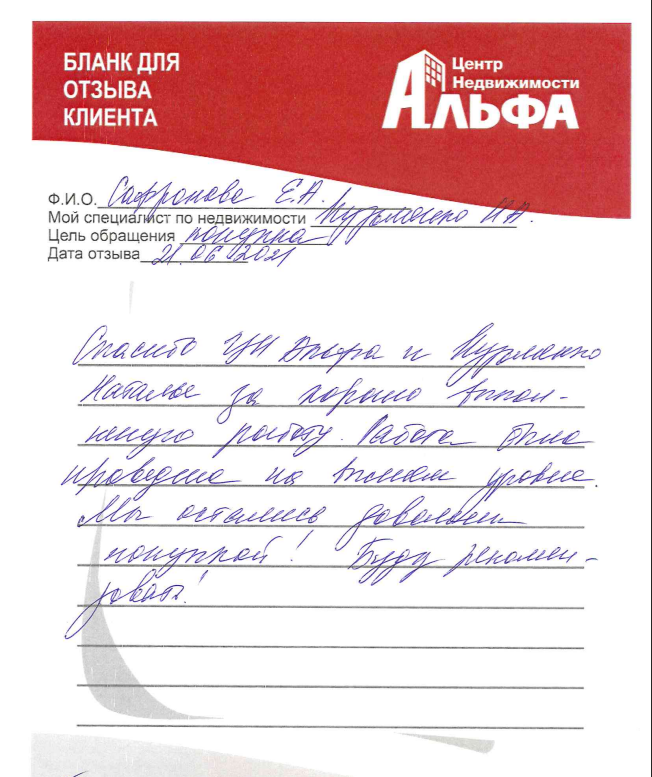 БЛАНК ДЛЯ
ОТЗЫВА
КЛИЕНТА
Центр
Недвижимости
АЛЬФА
Ф.И.О. Сафронова Е.А.
Мой специалист по недвижимости Кузьменко Н.А.
Цель обращения покупка
Дата отзыва 21 06 2021
Спасибо ЦН Альфа и Кузьменко
Наталье за хорошо выпол-
ненную работу. Работа была
проведена на высшем уровне.
Мы остались довольны
покупкой! Буду рекомен-
довать!